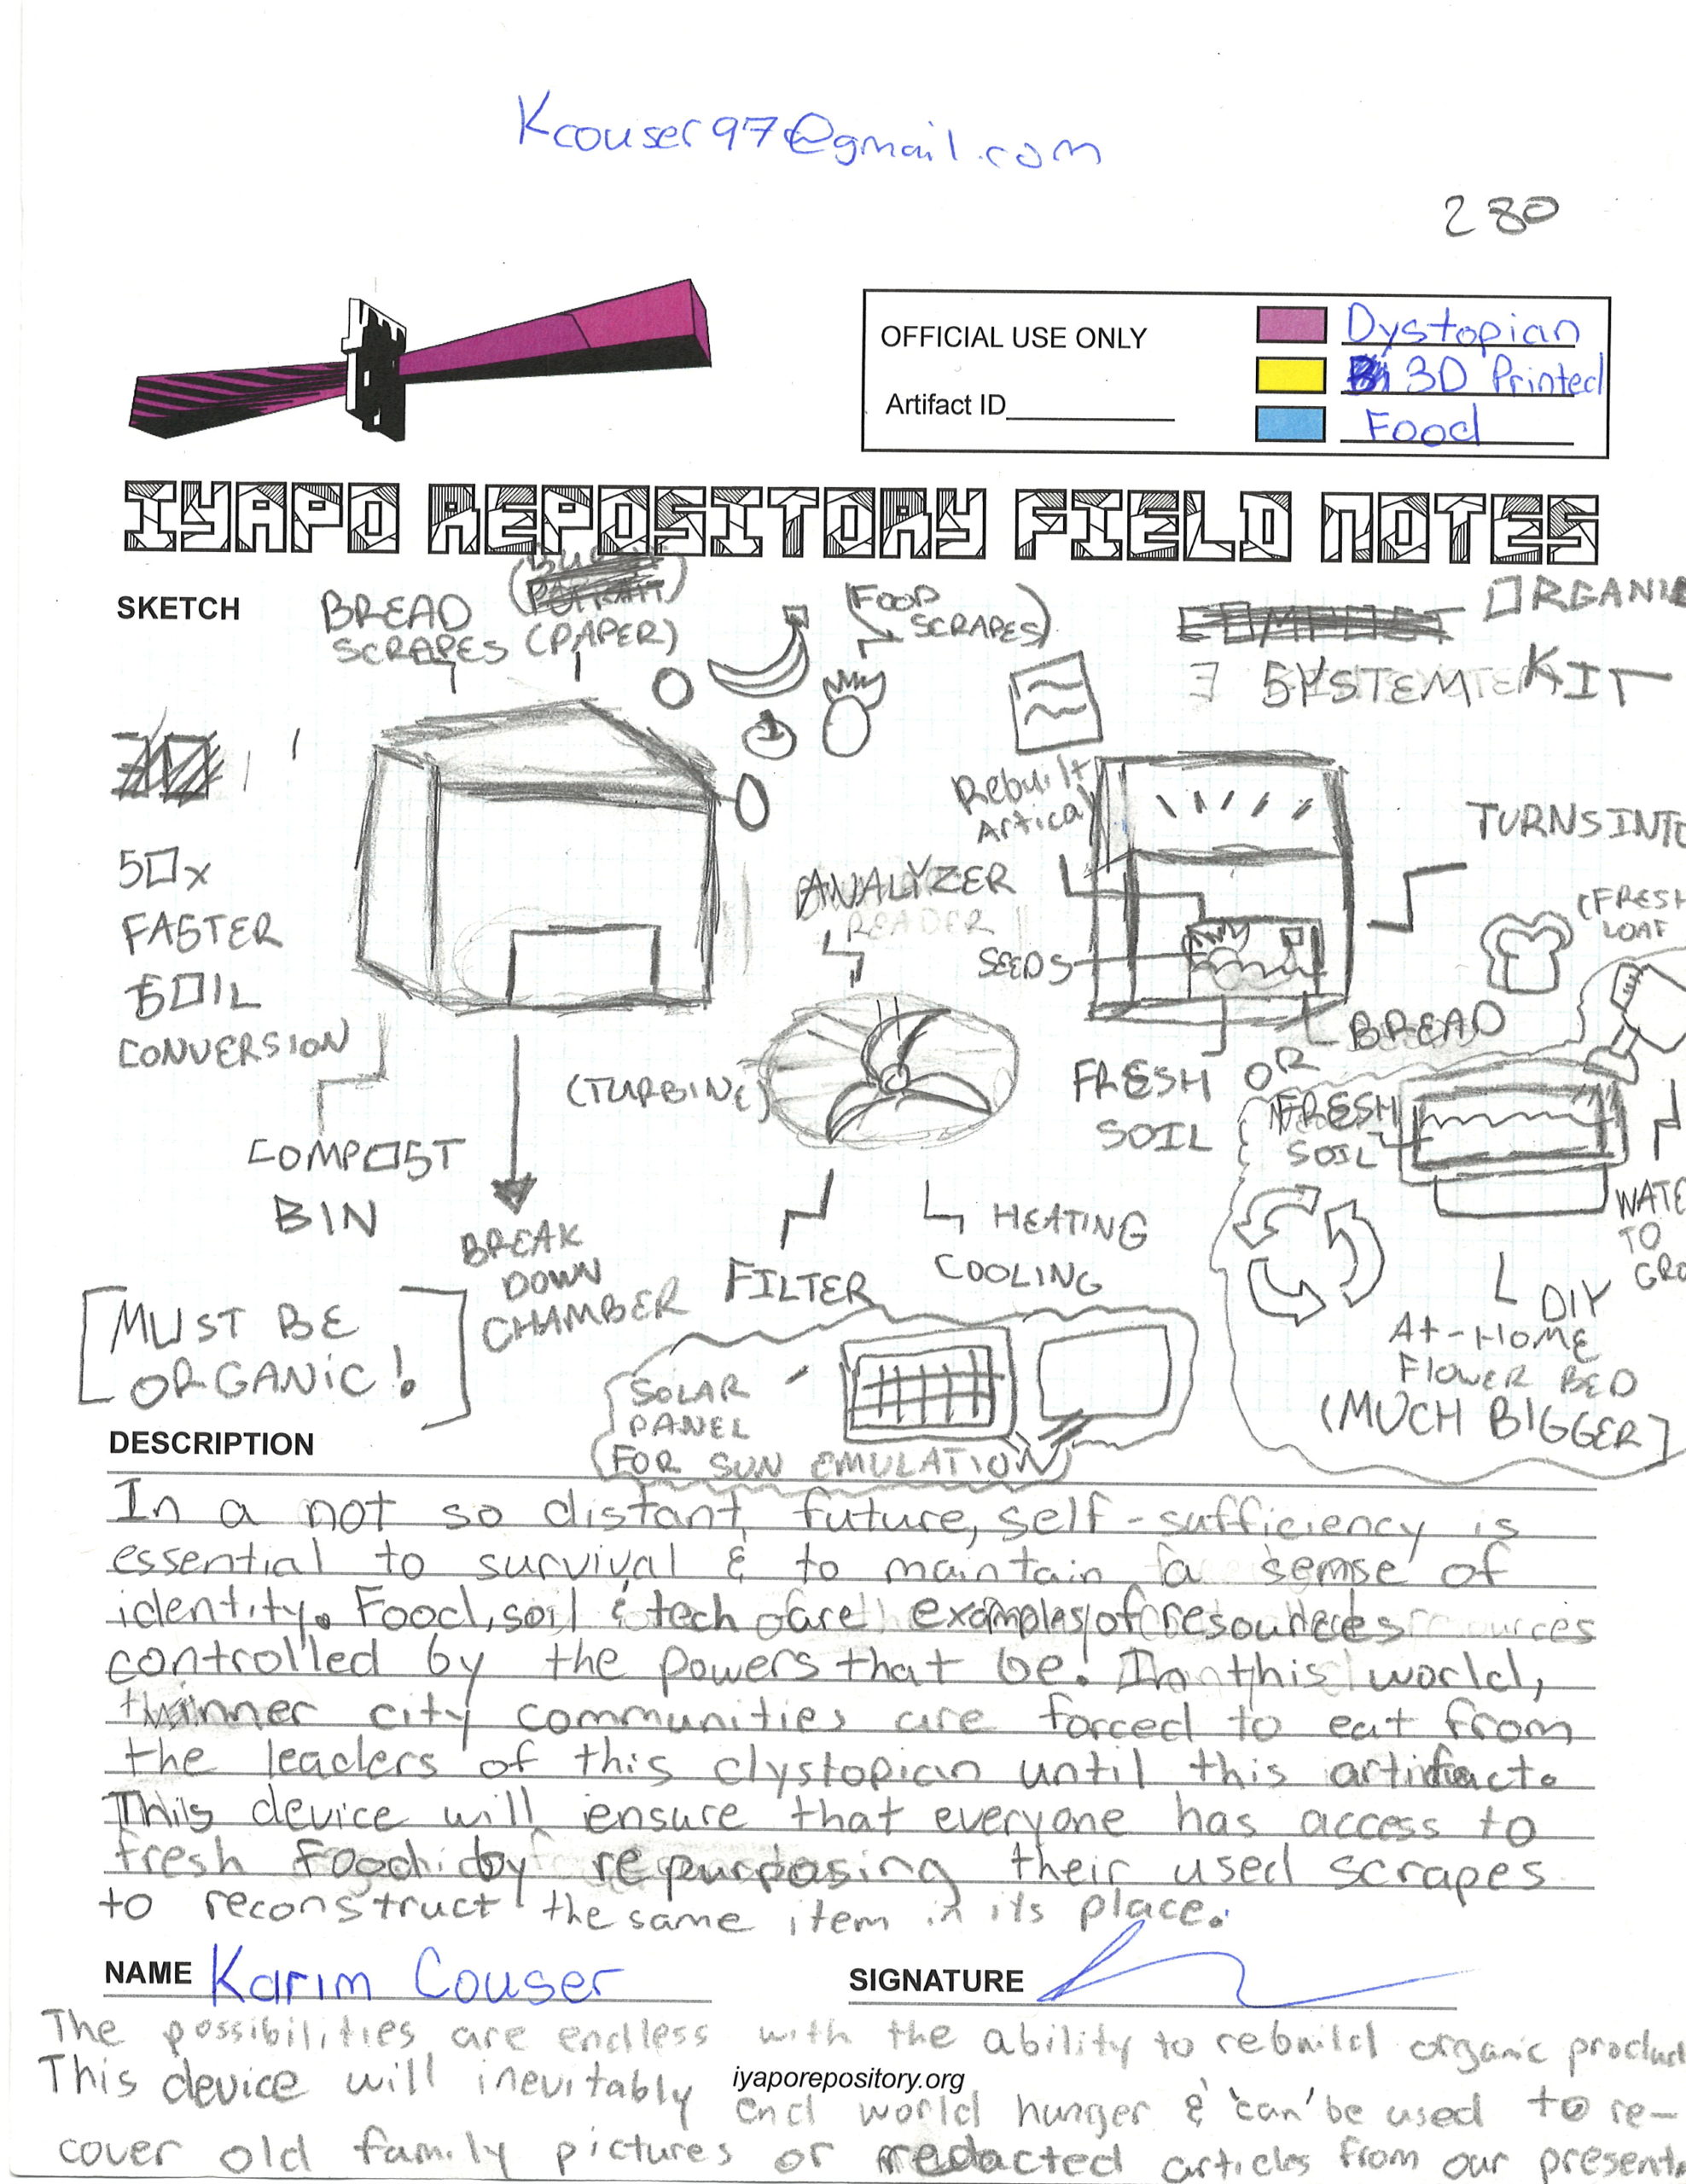 Kcouser97@gmail.com
280
OFFICIAL USE ONLY
Artifact ID
Dystopian
3D Printed
Food
IYAPO REPOSITORY FIELD NOTES
SKETCH
BREAD
SCRAPES
(PAPER)
(FOOD
SCRAPES)
ORGANIC
SYSTEM KIT
50x
FASTER
SOIL
CONVERSION
COMPOST
BIN
BREAK
DOWN
CHAMBER
[MUST BE
ORGANIC!]
ANALYZER
READER
(TURBINE)
FILTER
HEATING
COOLING
Rebuilt
Artical
SEEDS
FRESH
SOIL
BREAD
TURNS INTO
(FRESH
LOAF
OR
FRESH
SOIL
WATE
TO
GRO
DIY
At-HOME
FLOWER BED
(MUCH BIGGER)
SOLAR
PANEL
(FOR SUN EMULATION)
DESCRIPTION
In a not so distant future, self-sufficiency is
essential to survival & to maintain a sense of
identity. Food, soil & tech are examples of resources
controlled by the powers that be. In this world,
inner city communities are forced to eat from
the leaders of this dystopian until this artifact.
This device will ensure that everyone has access to
fresh food by repurposing their used scrapes
to reconstruct the same item in its place.
NAME Karim Couser
SIGNATURE
The possibilities are endless with the ability to rebuild organic product
This device will inevitably end world hunger & 'can' be used to re-
iyaporepository.org
cover old family pictures or redacted articles from our present.